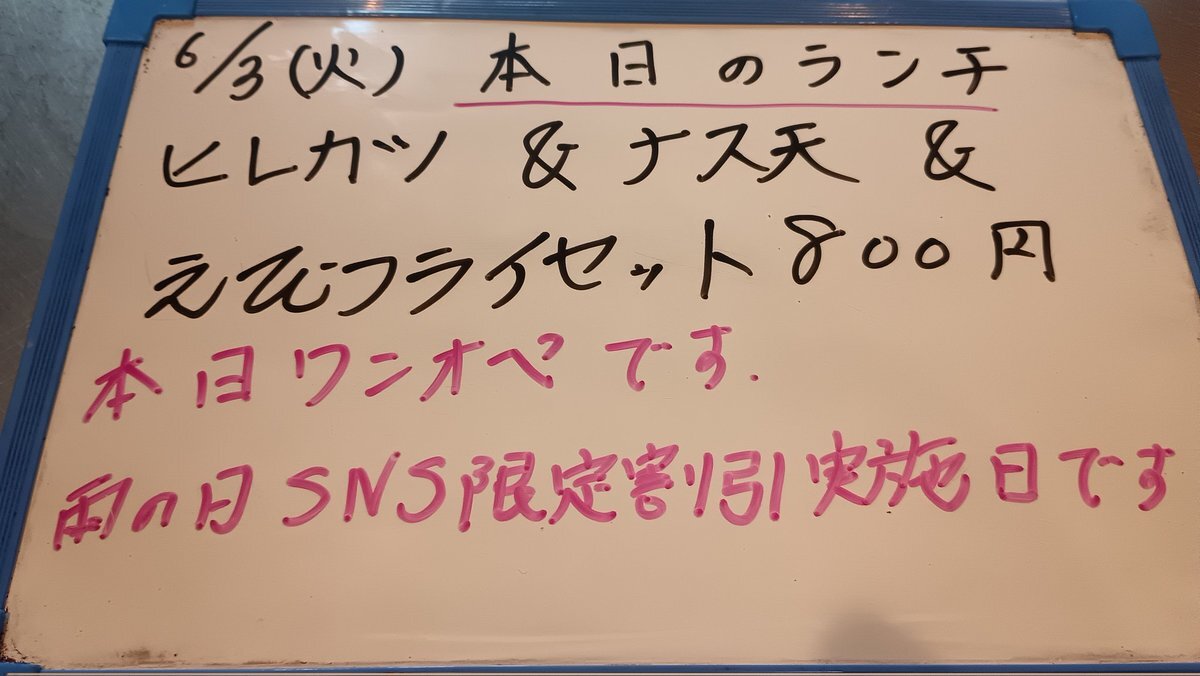 6/3(火) 本日のランチ
ヒレカツ & ナス天 &
えびフライセット 800円
本日ワンオペです.
雨の日SNS限定割引実施日です